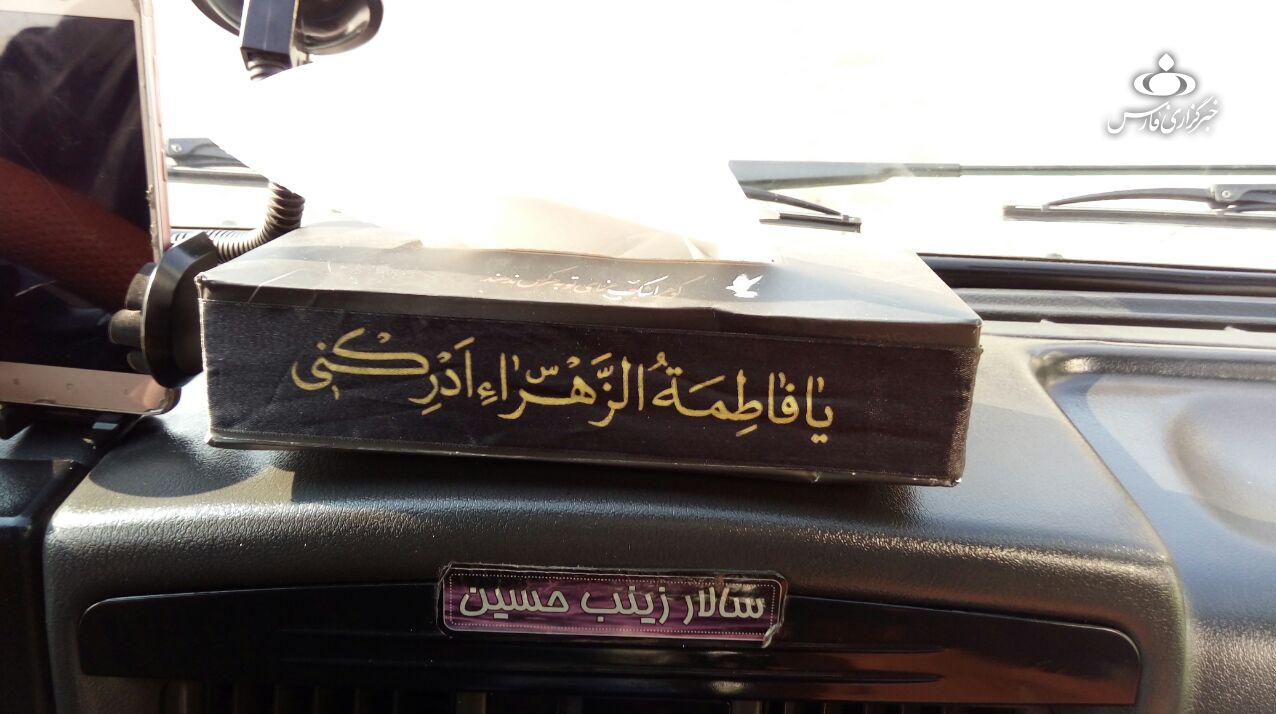 خبرگزاری فارس
یا فاطِمَةُ الزَّهْرٰاءِ اَدْرِكْنی
سالار زینب حسین